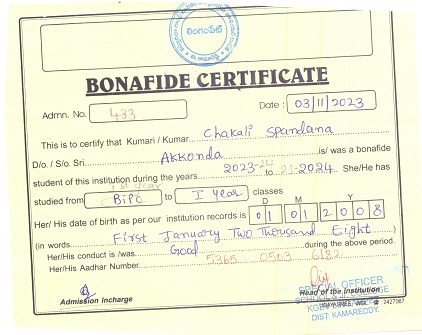 లింగంపేట్
BONAFIDE CERTIFICATE
Admn. No. 433
Date : 03/11/2023
This is to certify that Kumari / Kumar Chakali Spandana
D/o. / S/o. Sri. Akkonda is/ was a bonafide
student of this institution during the years 2023-24 to 2024 She/He has
1st year
studied from BiPC to I year classes
D M Y
Her/ His date of birth as per our institution records is 01 01 2008
(in words) First January Two Thousand Eight
Her/His conduct is /was Good during the above period.
Her/His Aadhar Number 5365 0503 6182
Admission Incharge
Head of the Institution
SPECIAL OFFICER
DIST. KAMAREDDY.